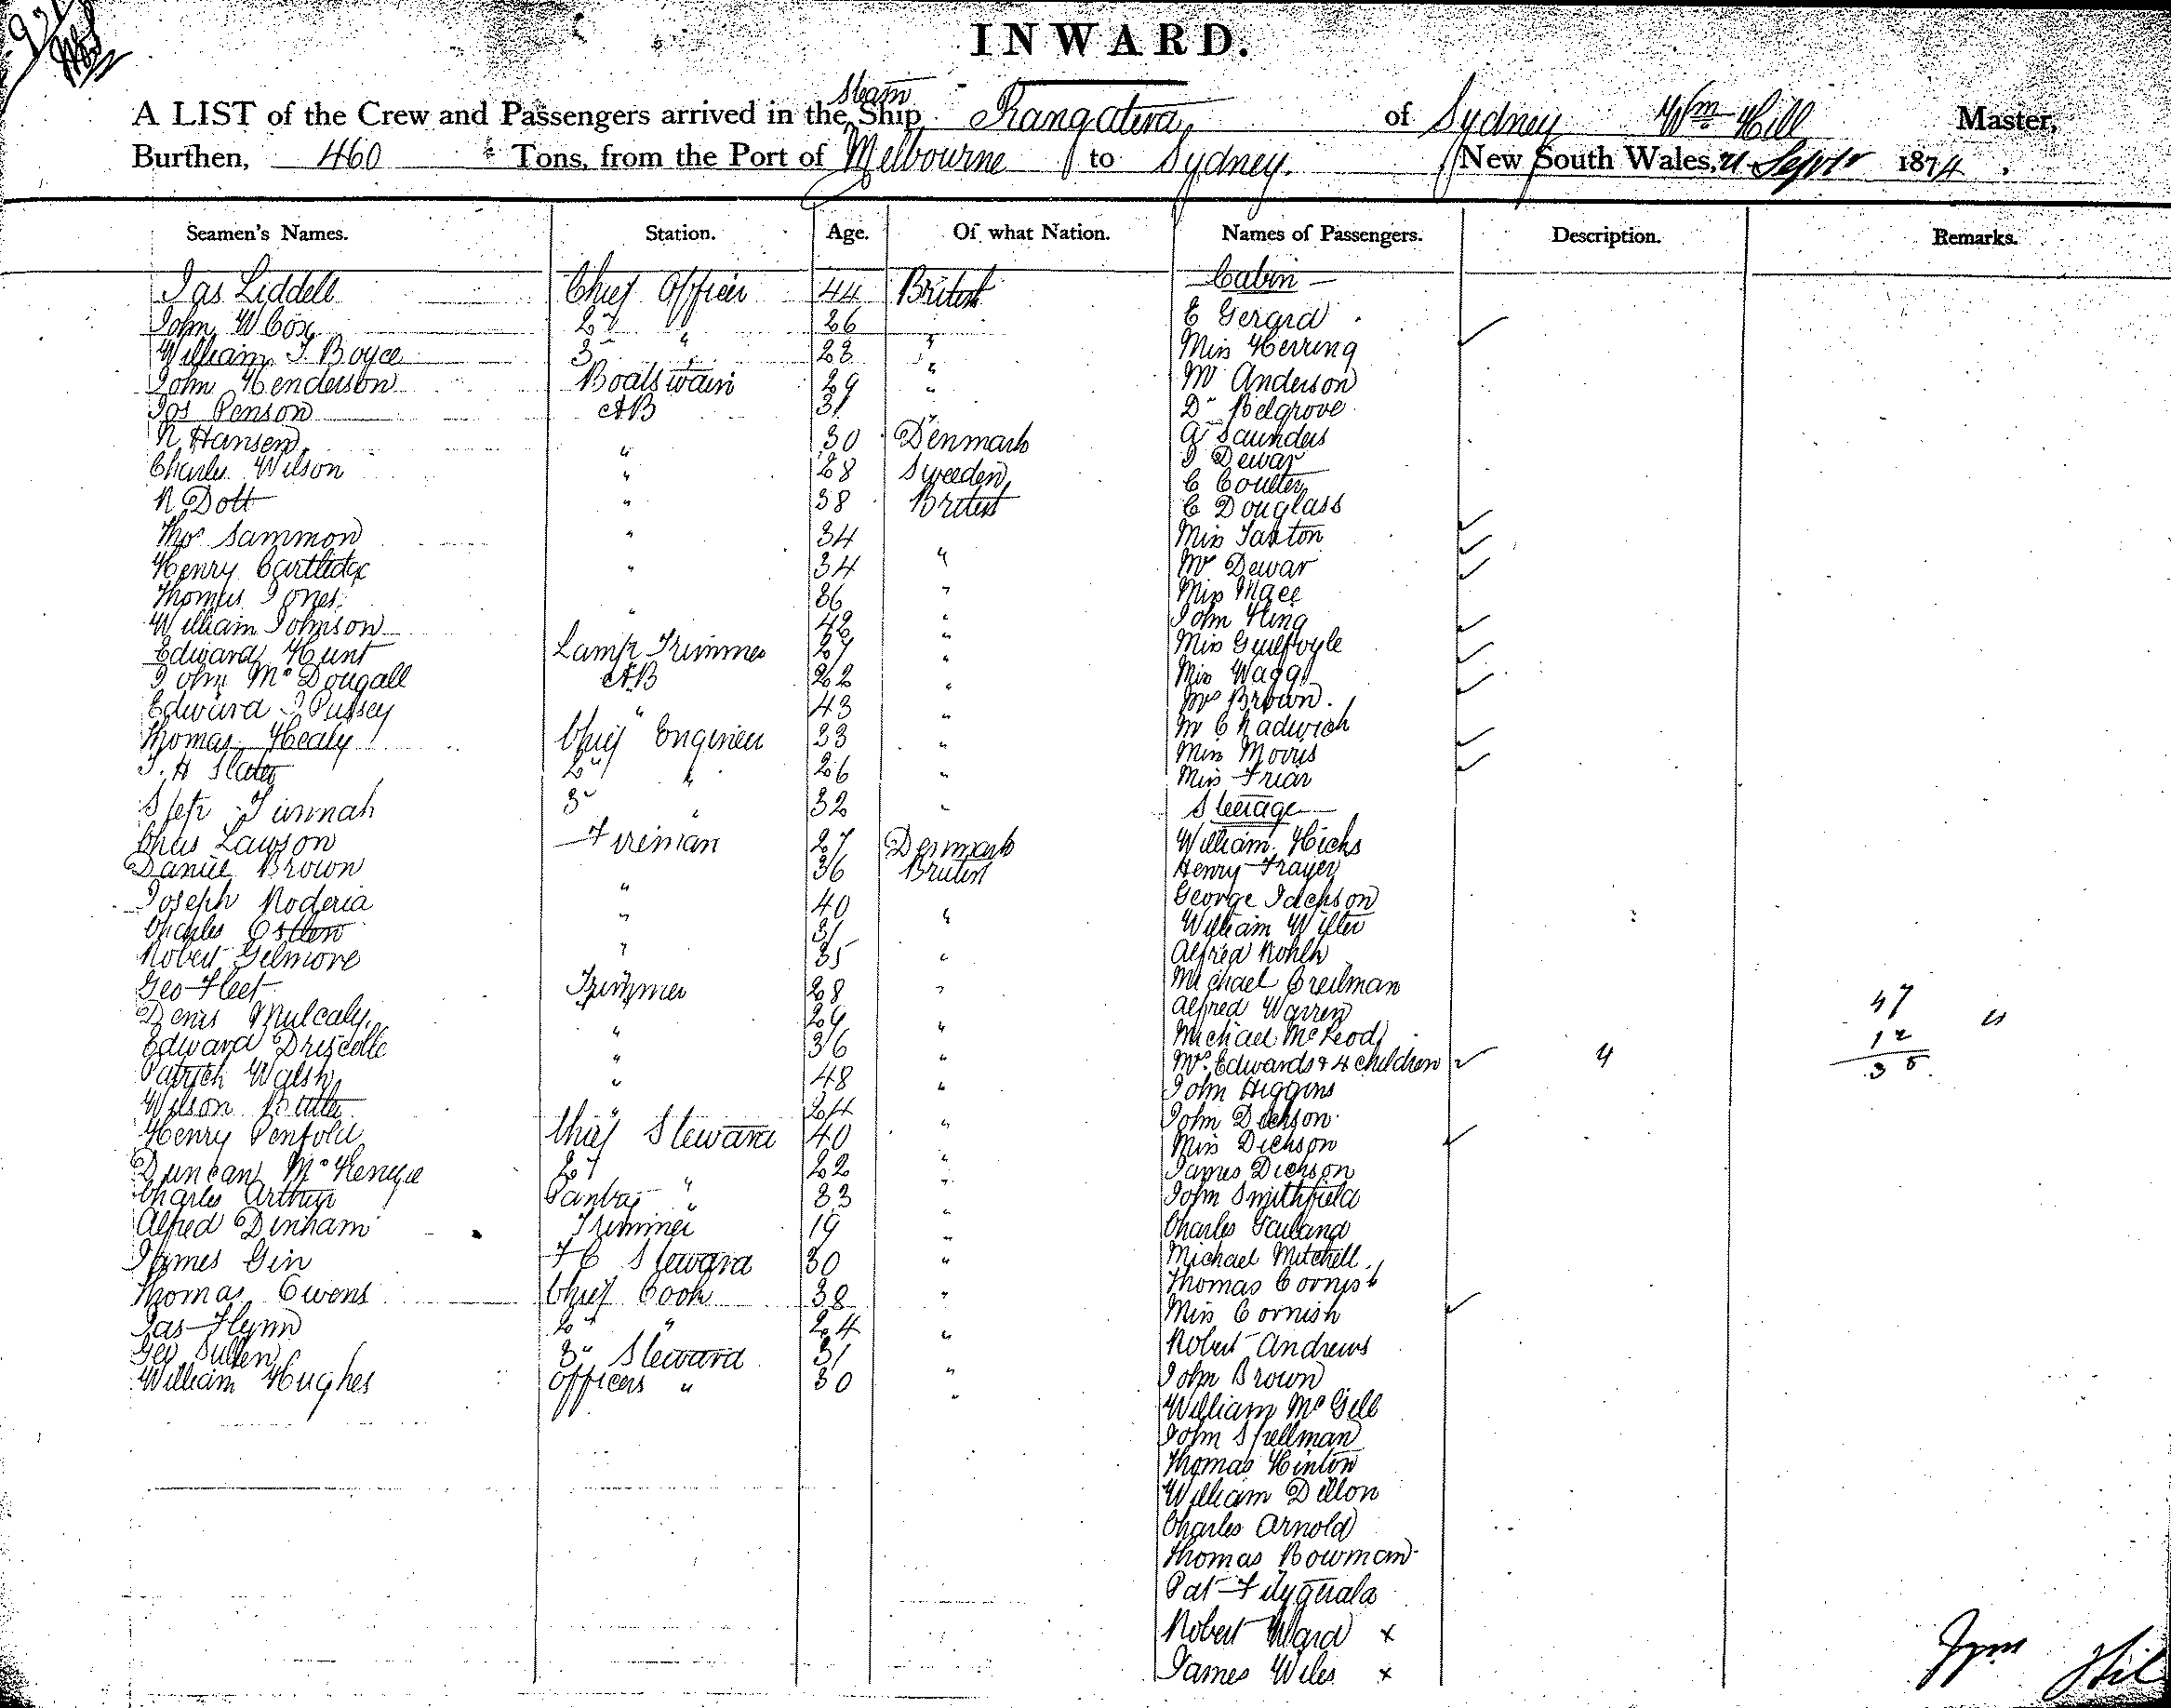 INWARD.
A LIST of the Crew and Passengers arrived in the Steam Ship Rangatira of Sydney Wm Hill Master,
Burthen, 460 Tons, from the Port of Melbourne to Sydney. New South Wales, 21 Septr 1874,
Seamen's Names. Station. Age. Of what Nation. Names of Passengers. Description. Remarks.
Jas Liddell Chief Officer 44 British Cabin
John W Cox 2d " 26 E Gerard
William J. Boyce 3 " 23 " Miss Herring
John Henderson Boatswain 29 " Mr Anderson
Jos Penson AB 31 " Dr Belgrove
N Hansen " 30 Denmark A Saunders
Charles Wilson " 28 Sweeden J Dewar
N Dott " 38 British C Coulter
C Douglass
Thos Sammon " 34 Miss Saxton
Henry Cartlidge " 34 " Mr Dewar
Thomas Jones " 36 " Miss Mace
William Johnson " 42 " John King
Edward Hunt Lamp Trimmer 27 " Miss Guilfoyle
John McDougall AB 22 " Miss Wagg
Edward J Pussey " 43 " Mrs Brown.
Thomas Healy Chief Engineer 33 " Mr Chadwick
J. H Slater 2" " 26 " Miss Morris
Miss Friar
Step Tinnah 3" " 32 " Steerage
Chas Lawson Fireman 27 Denmark William Hicks
Daniel Brown " 36 British Henry Frayer
Joseph Roderia " 40 " George Jackson
Charles Ostlen " 31 William Wilter
Robert Gilmore 35 " Alfred
Geo Fleet Trimmer 28 " Michael Creilman
Denis Mulcaly " 29 " Alfred Warren 47
Edward Driscolle " 36 " Michael McLeod 12
Patrick Walsh " 48 " Mrs Edwards & 4 children 4 35
John Higgins
Wilson Butler " 24 John Dickson
Henry Penfold Chief Steward 40 " Miss Dickson
Duncan McKenzie 2d " 22 " James Dickson
Charles Arthur Pantry " 33 " John Smithfield
Alfred Dinham Trimmer 19 " Charles
James Gin F C Steward 30 " Michael Mitchell
Thomas Owens Chief Cook 38 " Thomas Cornish
Miss Cornish
Jas Flynn 2d " 24 " Robert Andrews
Geo Sullen 3" Steward 31 " John Brown
William Hughes Officers " 30 " William McGill
John Spellman
Thomas Hinton
William Dillon
Charles Arnold
Thomas Bowman
Pat Fitzgerald
Robert Ward x
James Wiles x
Wm Hil